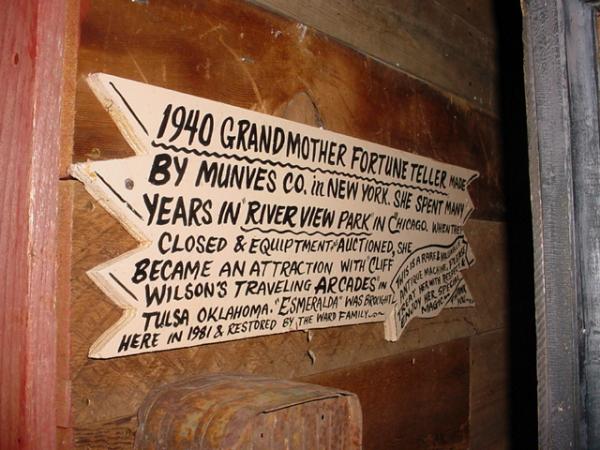 1940 GRANDMOTHER FORTUNE TELLER MADE
BY MUNVES CO. in NEW YORK. SHE SPENT MANY
YEARS IN RIVER VIEW PARK IN CHICAGO. WHEN THEY
CLOSED & EQUIPTMENT AUCTIONED, SHE
BECAME AN ATTRACTION WITH CLIFF
WILSON'S TRAVELING ARCADES IN
TULSA OKLAHOMA. "ESMERALDA" WAS BROUGHT
HERE IN 1981 & RESTORED BY THE WARD FAMILY
THIS IS A RARE &
ANTIQUE MACHINE. PLEASE
TREAT HER WITH RESPECT &
ENJOY HER SPECIAL
MAGIC THANK
YOU